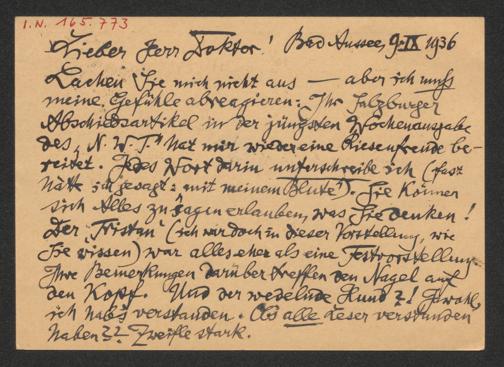 I.N. 165.773
Lieber Herr Doktor! Bad Aussee, 9.IX 1936
Lachen Sie mich nicht aus — aber ich muß
meine Gefühle abreagieren: Ihr Salzburger
Abschiedsartikel in der jüngsten Wochenausgabe
des „N.W.T." hat mir wieder eine Riesenfreude be-
reitet. Jedes Wort darin unterschreibe ich (fast
hätt' ich gesagt: mit meinem Blute!). Sie können
sich Alles zu sagen erlauben, was Sie denken!
Der „Tristan" (ich war doch in dieser Vorstellung, wie
Sie wissen) war alles eher als eine Festvorstellung.
Ihre Bemerkungen darüber treffen den Nagel auf
den Kopf. Und der wedelnde Hund?! Jawohl,
ich hab's verstanden. Ob alle Leser verstanden
haben?? Zweifle stark.